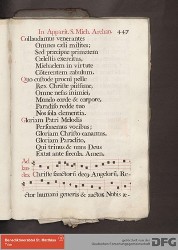 In Apparit. S. Mich. Archan. 447
Collaudamus venerantes
Omnes cæli milites:
Sed præcipue primatem
Cælestis exercitus,
Michaelem in virtute
Conterentem zabulum.
Quo custode procul pelle
Rex Christe piissime
Omne nefas inimici,
Mundo corde & corpore,
Paradiso redde tuo
Nos sola clementia.
Gloriam Patri Melodis
Personemus vocibus:
Gloriam Christo canamus,
Gloriam Paraclito,
Qui trinus & unus Deus
Extat ante sæcula. Amen.
Christe sanctorum decus Angelorum, Re-
ctor humani generis & auctor Nobis
DFG